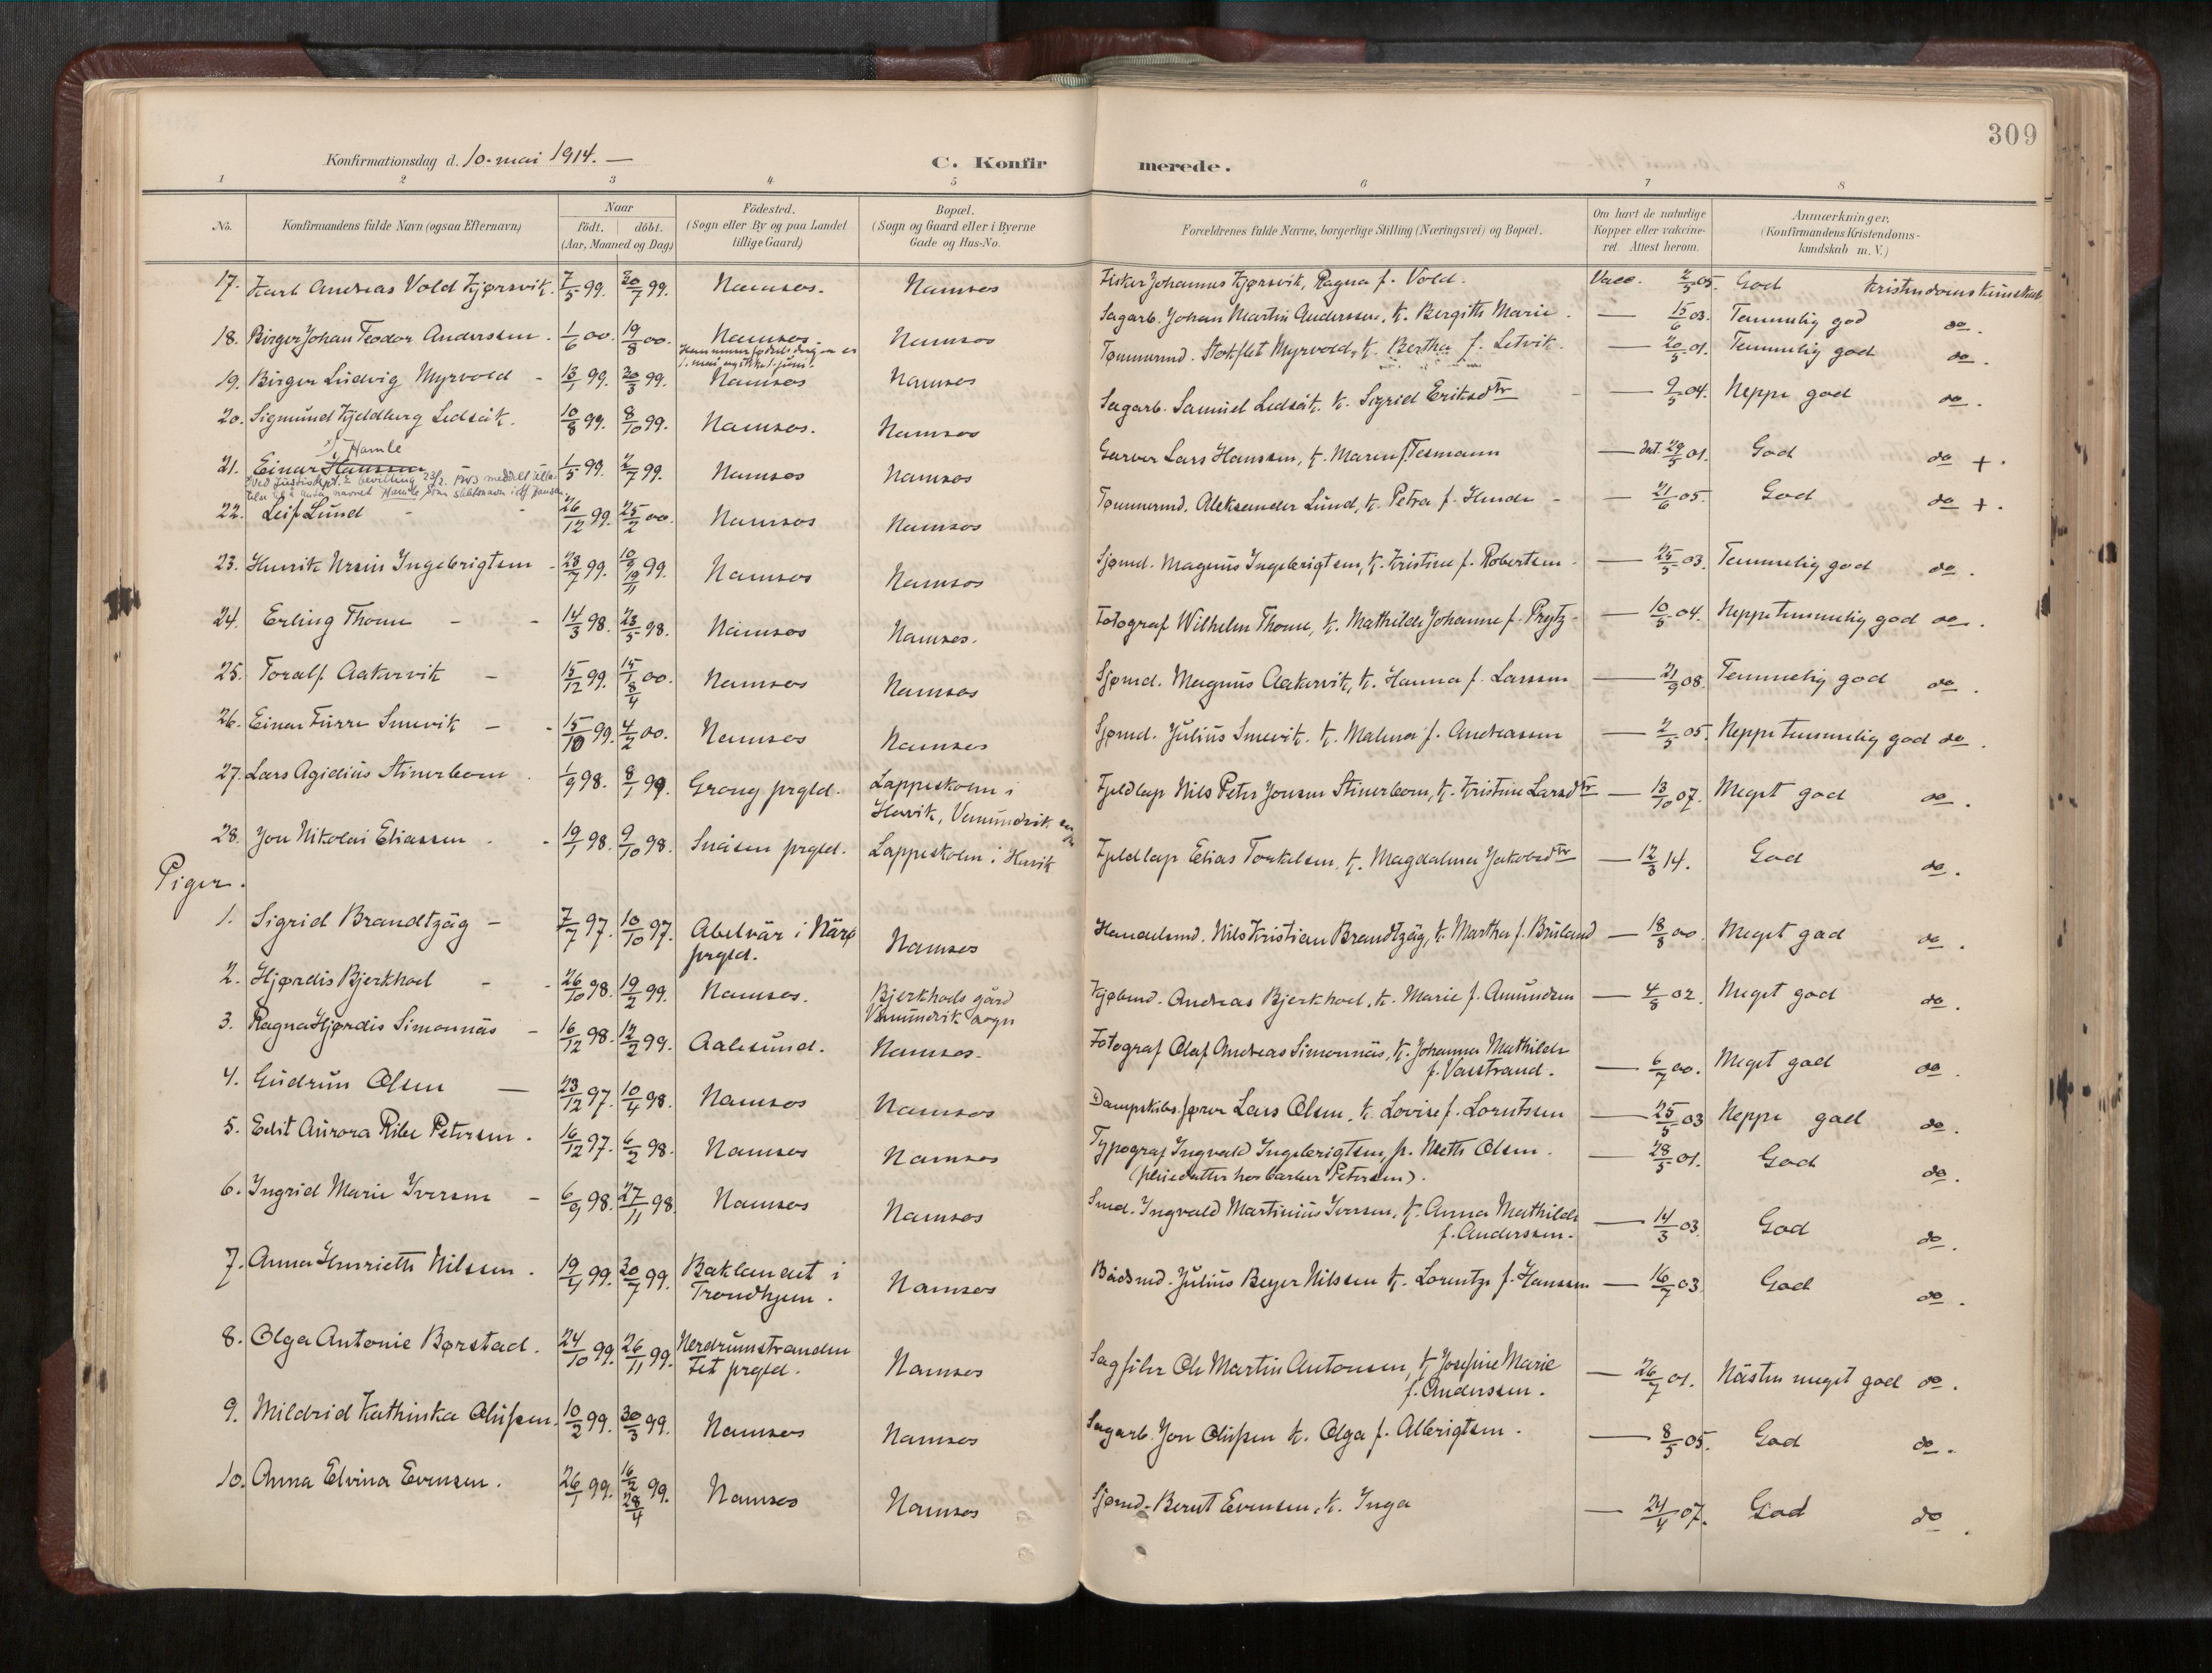 309
Konfirmationsdag d. 10. mai 1914. —
C. Konfirmerede.
1 2 3 4 5 6 7 8
No. Konfirmandens fulde Navn (ogsaa Efternavn) Naar födt. döbt. (Aar, Maaned og Dag) Födested. (Sogn eller By og paa Landet tillige Gaard) Bopæl. (Sogn og Gaard eller i Byerne Gade og Hus-No. Forældrenes fulde Navne, borgerlige Stilling (Næringsvei) og Bopæl. Om havt de naturlige Kopper eller vaccineret. Attest herom. Anmærkninger, (Konfirmandens Kristendomskundskab m. V.)
17. Karl Andreas Vold Kjørsvik. 7/5 99. 30/7 99. Namsos. Namsos Fisker Johannes Kjørsvik, Ragna f. Vold. Vacc. 2/5 05. God Kristendomskundskab
18. Birger Johan Teodor Anderssen. 1/6 00. 19/8 00. Namsos. Namsos Sagarb. Johan Martin Anderssen, k. Bergith Marie. — 15/6 03. Temmelig god do.
Han mener fødselsdagen er
1. mai og ikke 1. juni.
19. Birger Ludvig Myrvold - 13/1 99. 30/3 99. Namsos Namsos Tømmermd. Stokflet Myrvold, k. Bertha f. Letvik. — 20/5 01. Temmelig god do.
20. Sigmund Kjeldberg Ledsåk. 10/8 99. 8/10 99. Namsos. Namsos Sagarb. Samuel Ledsåk, k. Sigrid Eriksdtr — 9/5 04. Neppe god do.
x) Hamle
21. Einar Hanssen 1/5 99. 2/7 99. Namsos Namsos Garver Lars Hanssen, k. Maren f. Tesmann — dat. 29/5 01. God do +.
x) Ved Justisdept.s bevilling 23/2. 1923 meddelt tilla-
telse til å anta navnet Hamle som slektsnavn istf. Hansen.
22. Leif Lund - 26/12 99. 25/2 00. Namsos Namsos Tømmermd. Aleksander Lund, k. Petra f. Hunde - — 21/6 05. God do +.
23. Henrik Ursin Ingebrigtsen - 23/7 99. 10/9 19/11 99. Namsos Namsos Sjømd. Magnus Ingebrigtsen, k. Kristine f. Robertsen. — 25/5 03. Temmelig god do.
24. Erling Thome - - 14/3 98. 23/5 98. Namsos Namsos. Fotograf Wilhelm Thome, k. Mathilde Johanne f. Prytz - — 10/5 04. Neppe temmelig god do.
25. Toralf Aakervik - 15/12 99. 15/1 8/4 00. Namsos Namsos Sjømd. Magnus Aakervik, k. Hanna f. Larssen — 21/9 08. Temmelig god do.
26. Einar Furre Smevik - - 15/10 99. 4/2 00. Namsos Namsos Sjømd. Julius Smevik. k. Malena f. Andreassen — 2/5 05. Neppe temmelig god do.
27. Lars Agidius Stinerbom. 1/9 98. 8/1 99. Grong prgld. Lappeskolen i Havik, Vemundvik sogn Fjeldlap Nils Peter Jonsen Stinerbom, k. Kristine Larsdtr — 13/10 07. Meget god do.
28. Jon Nikolai Eliassen. - 19/1 98. 9/10 98. Snåsen prgld. Lappeskolen i Havik Fjeldlap Elias Torkelsen, k. Magdalena Jakobsdtr — 12/3 14. God do.
Piger.
1. Sigrid Brandtzäg - 7/7 97. 10/10 97. Abelvär i Närø prgld. Namsos Handelsmd. Nils Kristian Brandtzäg, k. Martha f. Brüland — 18/8 00. Meget god do.
2. Hjørdis Bjerkhoel - - 26/10 98. 19/2 99. Namsos. Bjerkhoels gård Vemundvik sogn Kjøbmd. Andreas Bjerkhoel, k. Marie f. Amundsen — 4/8 02. Meget god do.
3. Ragna Hjørdis Simonnäs - 16/12 98. 12/2 99. Aalesund. Namsos. Fotograf Olaf Andreas Simonnäs, k. Johanna Mathilde f. Vaestrand. — 6/7 00. Meget god do.
4. Gudrun Olsen — 23/12 97. 10/4 98. Namsos Namsos Dampskibsfører Lars Olsen, k. Lovise f. Lorntssen — 25/5 03 Neppe god do.
5. Edit Aurora Ribe Petersen. 16/12 97. 6/2 98. Namsos Namsos Typograf Ingvald Ingebrigtsen, p. Meth Olsen. (pleiedatter hos barber Petersen). — 28/5 01. God do.
6. Ingrid Marie Iversen - 6/9 98. 27/11 98. Namsos Namsos Smd. Ingvald Martinius Iversen, k. Anna Mathilde f. Anderssen. — 14/3 03. God do.
7. Anna Henriette Nilssen. 19/4 99. 30/7 99. Baklandet i Trondhjem. Namsos Bådsmd. Julius Beyer Nilssen k. Lorentze f. Hanssen — 16/7 03. God do.
8. Olga Antonie Børstad. 24/10 99. 26/11 99. Nerdrumstranden Fet prgld. Namsos Sagfiler Ole Martin Antonsen, k. Josefine Marie f. Anderssen. — 26/7 01. Nästen meget god do.
9. Mildrid Kathinka Olufsen. 10/2 99. 30/3 99. Namsos Namsos Sagarb. Jon Olufsen k. Olga f. Albrigtsen. — 8/5 05. God do.
10. Anna Elvina Evensen. 26/1 99. 16/2 28/4 99. Namsos Namsos Sjømd. Bernt Evensen, k. Inga — 24/4 07. God do.